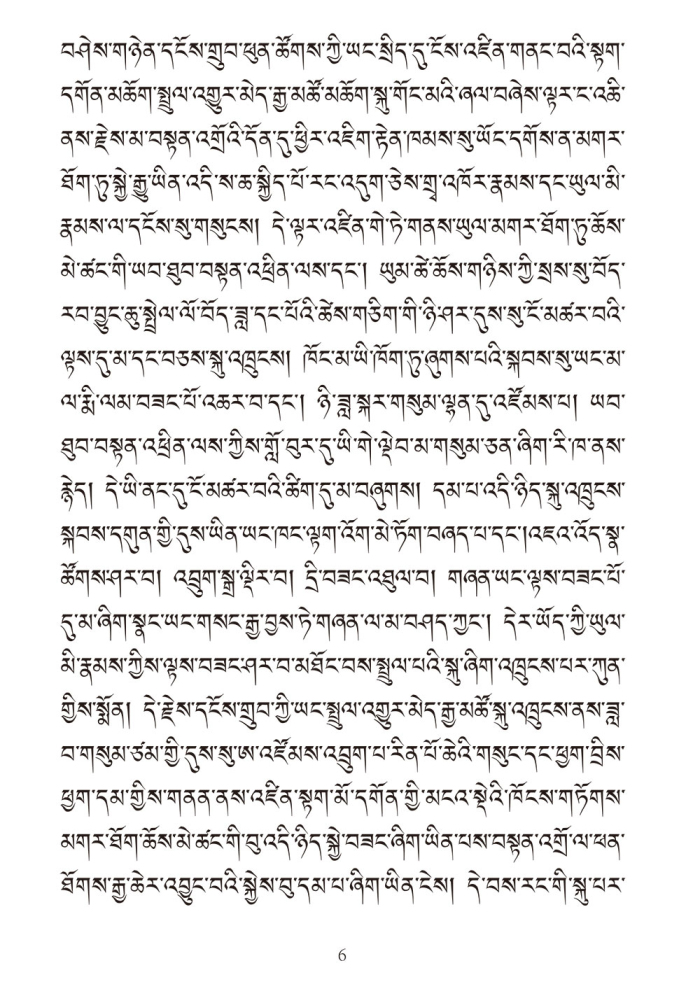 བཤེས་གཉེན་དངོས་གྲུབ་ཕུན་ཚོགས་ཀྱི་ཡང་སྲིད་དུ་ངོས་འཛིན་གནང་བའི་སྟག་
དགོན་མཆོག་སྤྲུལ་འགྱུར་མེད་རྒྱ་མཚོ་མཆོག་སྐུ་གོང་མའི་ཞལ་བཞེས་ལྟར་ང་འཆི་
ནས་རྗེས་མ་བསྟན་འགྲོའི་དོན་དུ་ཕྱིར་འཇིག་རྟེན་ཁམས་སུ་ཡོང་དགོས་ན་མགར་
ཐོག་ཏུ་སྐྱེ་རྒྱུ་ཡིན་འདི་ས་ཆ་སྐྱིད་པོ་རང་འདུག་ཅེས་གྲྭ་འཁོར་རྣམས་དང་ཡུལ་མི་
རྣམས་ལ་དངོས་སུ་གསུངས། དེ་ལྟར་འཛིན་གེ་ཏེ་གནས་ཡུལ་མགར་ཐོག་ཏུ་ཆོས་
མེ་ཚང་གི་ཡབ་ཐུབ་བསྟན་འཕྲིན་ལས་དང་། ཡུམ་ཚེ་ཆོས་གཉིས་ཀྱི་སྲས་སུ་བོད་
རབ་བྱུང་ཆུ་སྤྲེལ་ལོ་བོད་ཟླ་དང་པོའི་ཚེས་གཅིག་གི་ཉི་ཤར་དུས་སུ་ངོ་མཚར་བའི་
ལྟས་དུ་མ་དང་བཅས་སྐུ་འཁྲུངས། ཁོང་མ་ཡི་ཁོག་ཏུ་ཞུགས་པའི་སྐབས་སུ་ཡང་མ་
ལ་རྨི་ལམ་བཟང་པོ་འཆར་བ་དང་། ཉི་ཟླ་སྐར་གསུམ་ལྷན་དུ་འཛོམས་པ། ཡབ་
ཐུབ་བསྟན་འཕྲིན་ལས་ཀྱིས་གློ་བུར་དུ་ཡི་གེ་ལྡེབ་མ་གསུམ་ཅན་ཞིག་རི་ཁ་ནས་
རྙེད། དེ་ཡི་ནང་དུ་ངོ་མཚར་བའི་ཚིག་དུ་མ་བཞུགས། དམ་པ་འདི་ཉིད་སྐུ་འཁྲུངས་
སྐབས་དགུན་གྱི་དུས་ཡིན་ཡང་ཁང་ལྟག་འོག་མེ་ཏོག་བཞད་པ་དང་།འཇའ་འོད་སྣ་
ཚོགས་ཤར་བ། འབྲུག་སྒྲ་ལྡིར་བ། དྲི་བཟང་འཐུལ་བ། གཞན་ཡང་ལྟས་བཟང་པོ་
དུ་མ་ཞིག་སྣང་ཡང་གསང་རྒྱ་བྱས་ཏེ་གཞན་ལ་མ་བཤད་ཀྱང་། དེར་ཡོད་ཀྱི་ཡུལ་
མི་རྣམས་ཀྱིས་ལྟས་བཟང་ཤར་བ་མཐོང་བས་སྤྲུལ་པའི་སྐུ་ཞིག་འཁྲུངས་པར་ཀུན་
གྱིས་སྨོན། དེ་རྗེས་དངོས་གྲུབ་ཀྱི་ཡང་སྤྲུལ་འགྱུར་མེད་རྒྱ་མཚོ་སྐུ་འཁྲུངས་ནས་ཟླ་
བ་གསུམ་ཙམ་གྱི་དུས་སུ་ཨ་འཛོམས་འབྲུག་པ་རིན་པོ་ཆེའི་གསུང་དང་ཕྱག་བྲིས་
ཕྱག་དམ་གྱིས་གནན་ནས་འཛིན་སྟག་མོ་དགོན་གྱི་མངའ་སྡེའི་ཁོངས་གཏོགས་
མགར་ཐོག་ཆོས་མེ་ཚང་གི་བུ་འདི་ཉིད་སྐྱེ་བཟང་ཞིག་ཡིན་པས་བསྟན་འགྲོ་ལ་ཕན་
ཐོགས་རྒྱ་ཆེར་འབྱུང་བའི་སྐྱེས་བུ་དམ་པ་ཞིག་ཡིན་ངེས། དེ་བས་རང་གི་སྐུ་པར་
6